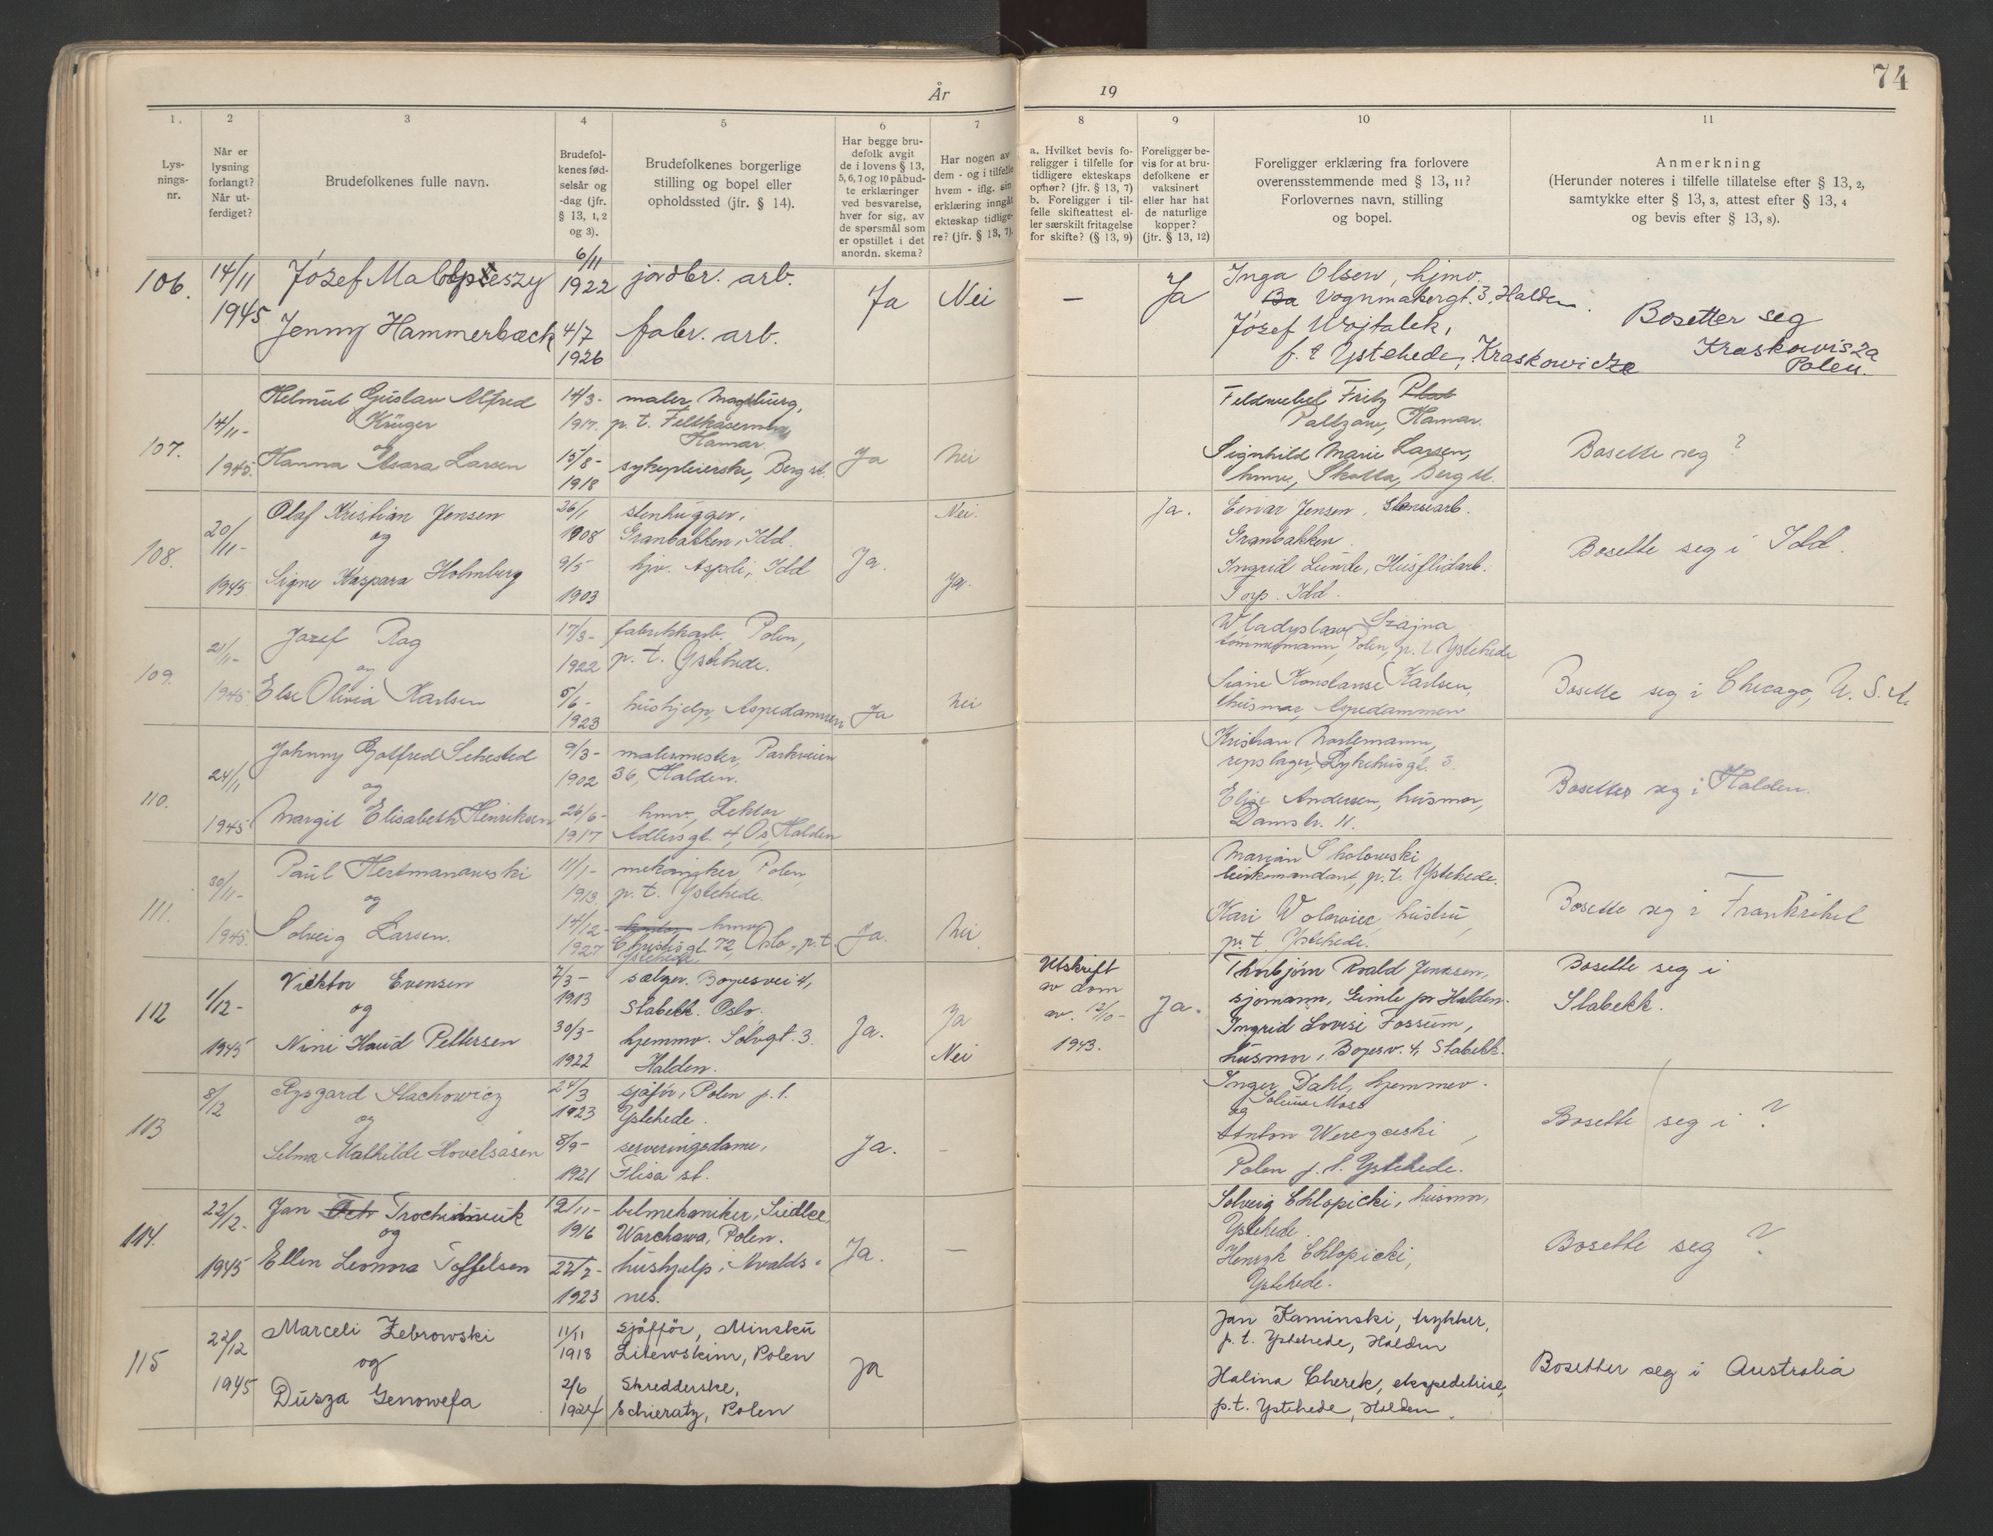 74
År
19
1.
Lys-
nings-
nr.
2
Når er
lysning
forlangt?
Når ut-
ferdiget?
3
Brudefolkenes fulle navn.
4
Brudefol-
kenes fød-
selsår og
-dag (jfr.
§ 13, 1, 2
og 3).
5
Brudefolkenes borgerlige
stilling og bopel eller
opholdssted (jfr. § 14).
6
Har begge bru-
defolk avgit
de i lovens § 13,
5, 6, 7 og 10 påbud-
te erklæringer
ved besvarelse,
hver for sig, av
de spørsmål som
er opstillet i det
anordn. skema?
7
Har nogen av
dem - og i tilfelle
hvem - iflg. sin
erklæring inngåt
ekteskap tidlige-
re? (jfr. § 13, 7).
8
a. Hvilket bevis fo-
religger i tilfelle for
tidligere ekteskaps
ophør? (jfr. § 13, 7)
b. Foreligger i til-
felle skifteattest el-
ler særskilt fritagelse
for skifte? (§ 13, 9)
9
Foreligger be-
vis for at bru-
defolkene er
vaksinert
eller har hat
de naturlige
kopper?
(jfr. § 13, 12)
10
Foreligger erklæring fra forlovere
overensstemmende med § 13, 11?
Forlovernes navn, stilling
og bopel.
11
Anmerkning
(Herunder noteres i tilfelle tillatelse efter § 13, 2,
samtykke efter § 13, 3, attest efter § 13, 4
og bevis efter § 13, 8).
106.
14/11
1945
Józef
Jenny Hammerbæck
6/11
1922
4/7
1926
jordbr. arb.
fabr. arb.
Ja
Nei
—
Ja
Inga Olsen, hjmv.
Vognmakergt. 3, Halden.
Józef Wojtalek,
p. t. Ystehede, Kraskowicze
Bosetter seg
Kraskowisza
Polen.
107.
14/11-
1945.
Helmut Gustav Alfred
Krüger
og
Hanna Larsen
14/3-
1917.
15/8-
1918
maler, Magdburg,
p. t. Feltkaserne
Hamar.
sykepleierske, Berg st.
Ja
Nei
Feldwebel Fritz
Paltzow, Hamar.
Signhild Marie Larsen,
hmv, Skotta, Berg st.
Bosette seg ?
108.
20/11-
1945.
Olaf Kristian Jensen
og
Signe Kaspara Holmberg
26/1
1908
9/5
1903
stenhugger,
Granbakken, Idd.
hjv. Aspli, Idd
Ja.
Nei.
Ja.
Ja.
Einar Jensen,
Granbakken.
Ingrid Lunde, Husflidarb.
Torp. Idd.
Bosette seg i Idd.
109.
21/11-
1945.
Jozef Rag
og
Else Olivia Karlsen
17/3-
1922
5/6-
1923
fabrikkarb. Polen,
p. t. Ystehede.
hushjelp, Aspedammen
Ja
Nei
Wladyslaw Szajna
tømmermann, Polen, p. t Ystehede
Signe Konstanse Karlsen,
husmor, Aspedammen
Bosette seg i Chicago, U. S. A.
110.
24/11
1945
Johnny Gotfred Sehested
og
Margit Elisabeth Henriksen
9/3-
1902
26/6-
1917
malermester, Parkveien
36, Halden.
hmv, Lektor
Adlersgt. 4, Os, Halden
Kristian
repslager, Sykehusgt. 3.
Elise Andersen, husmor,
Damstr. 11.
Bosetter seg i Halden.
111.
30/11-
1945.
Paul Hertmanawski
og
Solveig Larsen.
11/1-
1913.
14/12-
1927
mekaniker, Polen,
p. t. Ystehede.
hmv
gt. 72, Oslo, p. t.
Ystehede
Ja.
Nei.
Marian Skolowski
leirkommandant, p. t. Ystehede.
Kari Wolowiec, hustru,
p. t. Ystehede.
Bosette seg i Frankriket
112
1/12-
1945
Vicktor Evensen
og
Nini Haud Pettersen
7/3-
1913
30/3-
1922
sælger. Boyesvei 4,
Stabekk. Oslo,
hjemmv. Solvgt. 3.
Halden.
Ja.
Ja
Nei
Utskrift
av dom
av. 12/10-
1943.
Ja.
Thorbjørn Roald Jenssen,
sjømann, Gimle pr Halden.
Ingrid Lovise Fossum,
husmor, Boyesv. 4, Stabekk.
Bosette seg i
Stabekk.
113
8/12
Rysgard Stachowicz
og
Selma Mathilde Hovelsåsen
24/3
1923
8/9-
1921
sjåfør, Polen p. t.
Ystehede.
serveringsdame,
Flisa st.
Ja.
-
Inger Dahl, hjemmev.
og
Anton
Polen p. t. Ystehede.
Bosette seg i ?
114.
22/12.
1945
Jan
og
Ellen Leonora Toffelsen
12/11-
1916
22/7-
1923
bilmekaniker, Siedlce,
Warchawa, Polen.
hushjelp, Avalds-
nes.
Ja.
—
Solveig Chlopicki, husmor,
Ystehede.
Henryk Chlopicki,
Ystehede.
Bosette seg ?
115
22/12
1945
Marceli Zebrowski
og
Dusza Genowefa
11/11
1918
2/6
1924
sjåfför, Minsku
Litewskim, Polen
Skredderske,
Schieratz, Polen
Ja
Jan Kaminski, trykker,
p. t. Ystehede, Halden
Halina Cherek, ekspeditrise,
p. t. Ystehede, Halden.
Bosetter seg i Australia